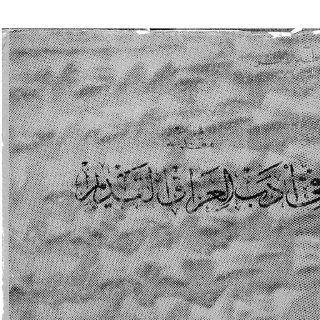 مقدمة
في أدب العراق القديم